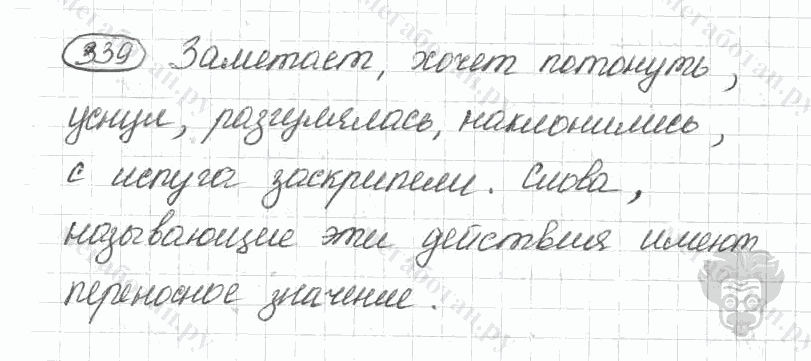 339 Заметает, хочет потонуть,
уснул, разгулялась, наклонились,
с испуга заскрипели. Слова,
называющие эти действия имеют
переносное значение.
мегаботан.ру